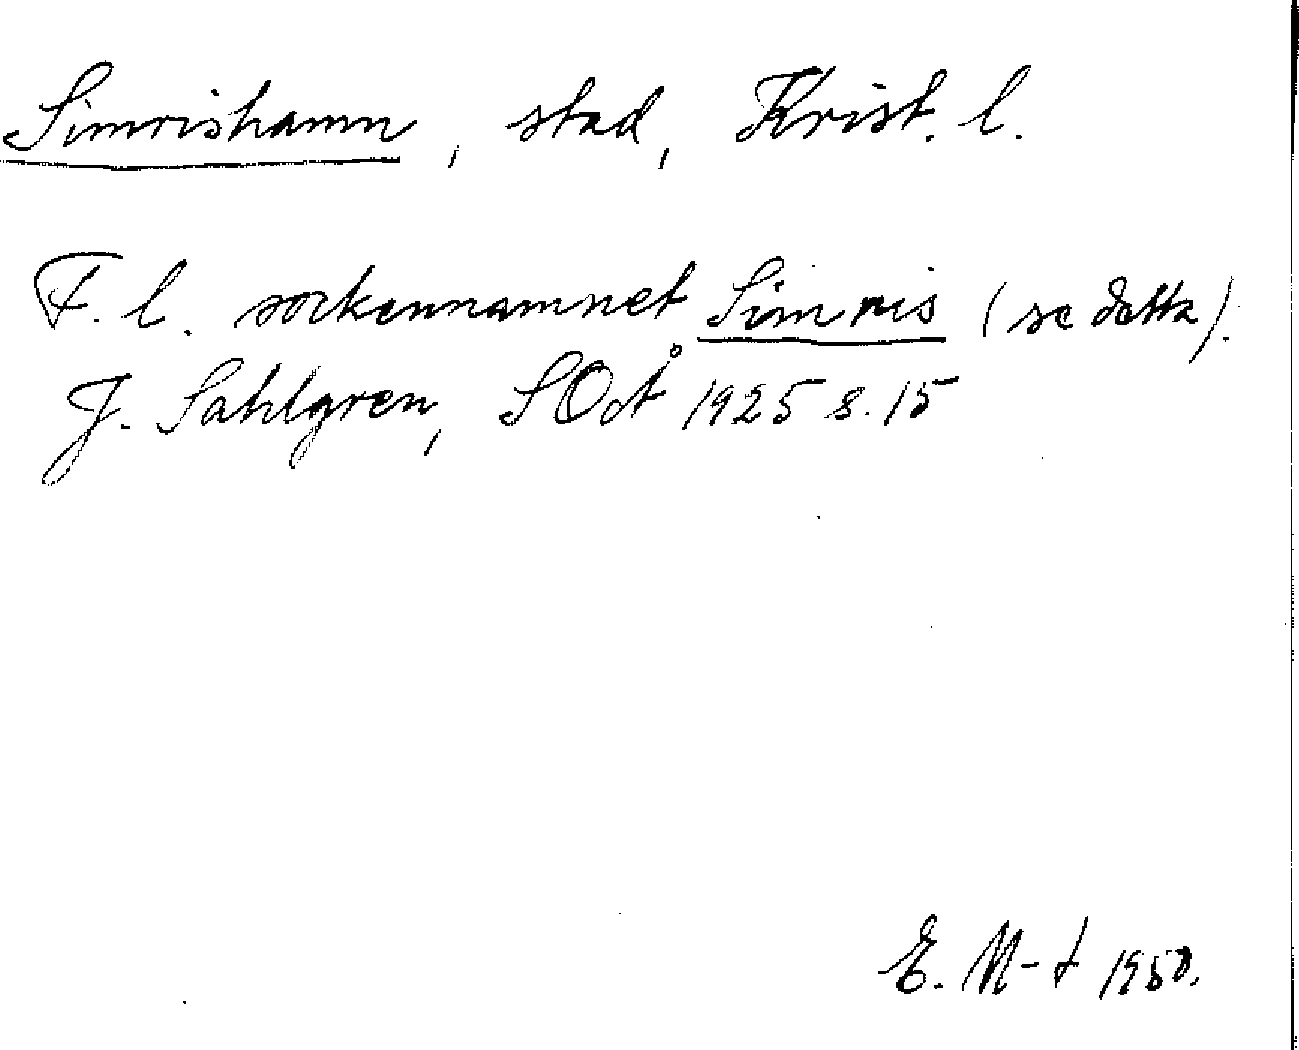 Simrishamn, stad, Krist. l.
F. l. sockennamnet Simris (se detta).
J. Sahlgren, SOÅ 1925 s. 15
E. M-t 1950.